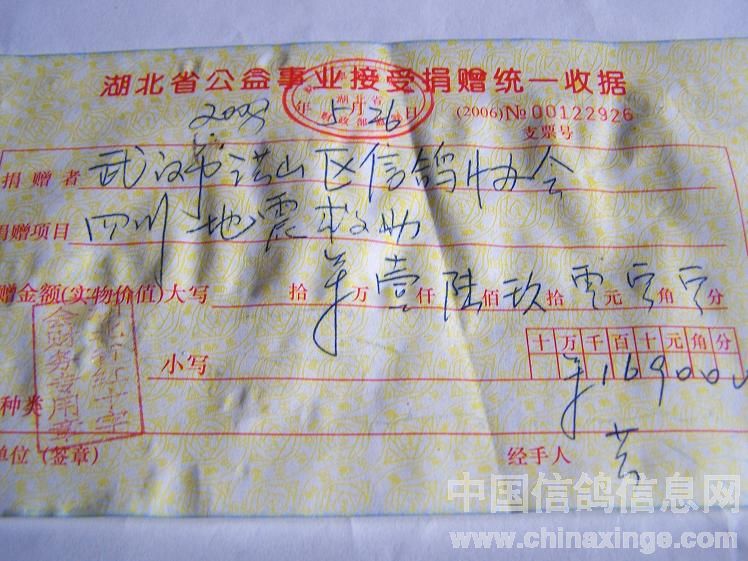 湖北省公益事业接受捐赠统一收据
2008年5月26日 (2006)№00122926
支票号
捐赠者 武汉市洪山区信鸽协会
捐赠项目 四川地震救助
赠金额(实物价值)大写 拾 万壹仟陆佰玖拾零元 角 分
小写 十万千百十元角分
¥169000
种类
单位(签章) 经手人
会财务专用章
中国信鸽信息网
www.chinaxinge.com